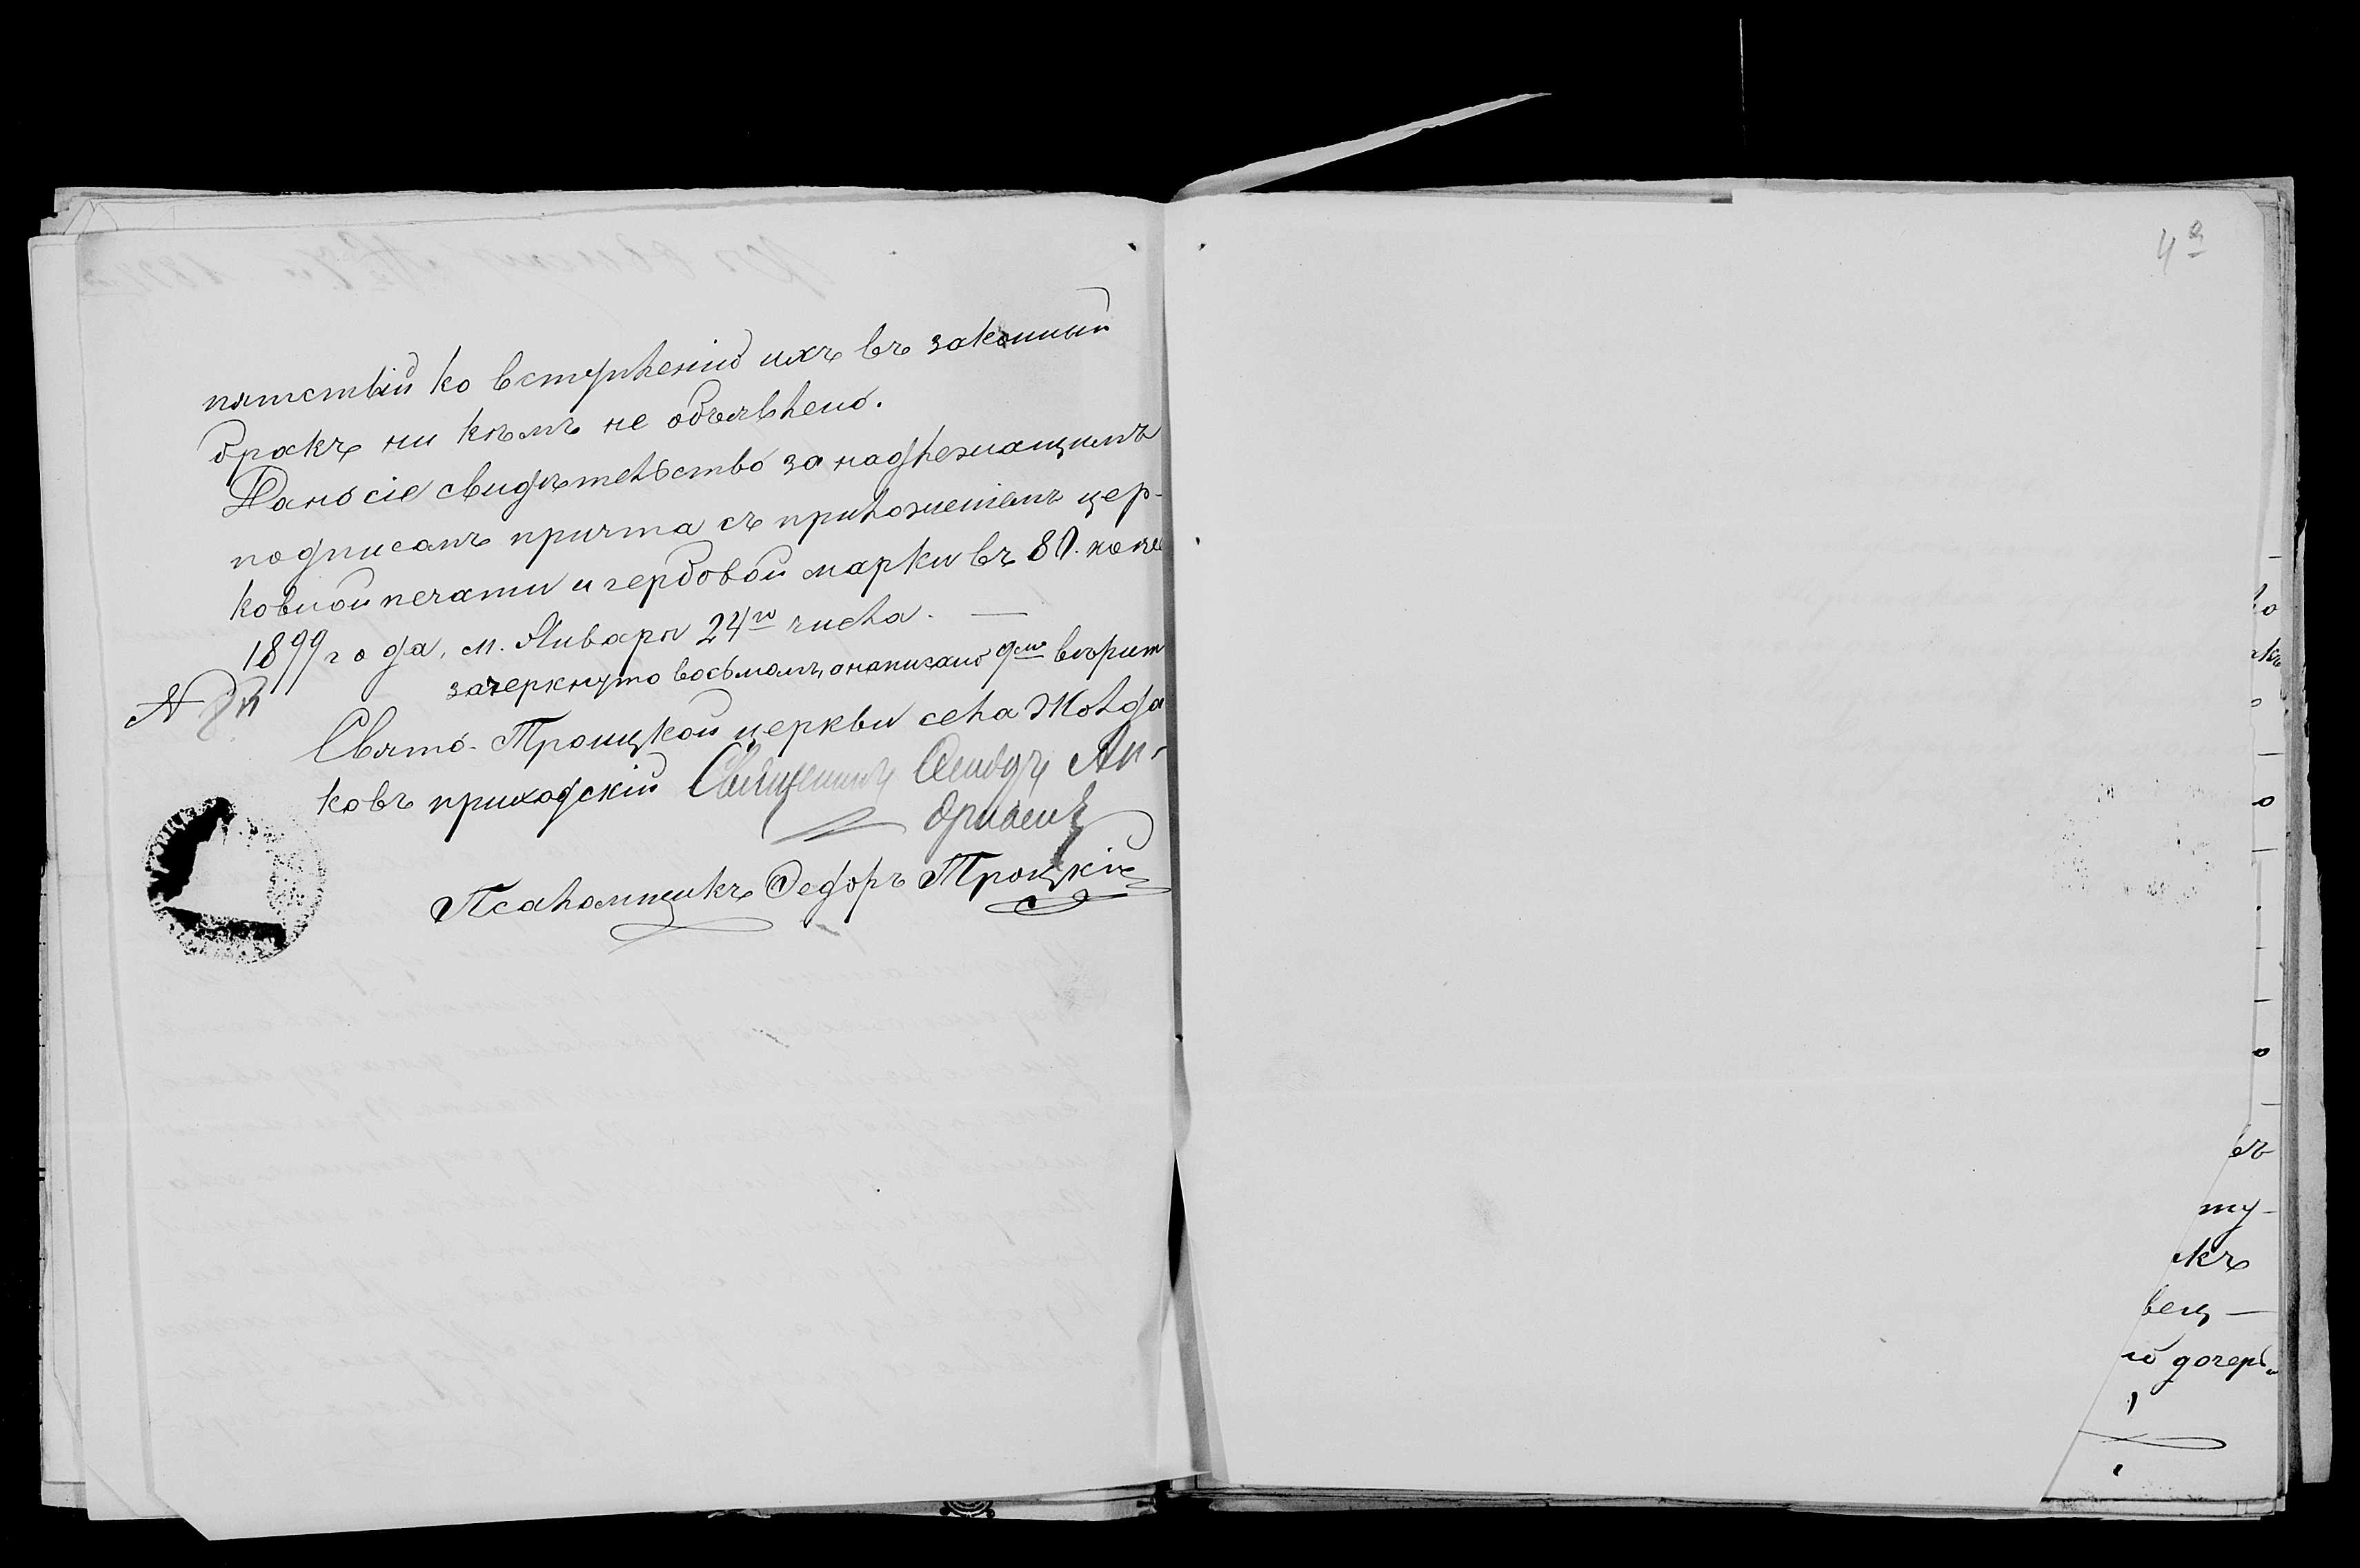 4
пятствій ко вступленію ихъ въ законный
бракъ ни кѣмъ не объявлено.
Дано сіе свидѣтельство за надлежащимъ
подписомъ причта съ приложеніемъ цер-
ковной печати и гербовой марки въ 80. копѣ
1899 года, м. Января 24го числа. —
зачеркнуто восьмомъ, а написано
№
Свято-Троицкой церкви села Жолда
ковъ приходскій Священникъ Ан-
Псаломщикъ Федоръ Троицкій
къ
въ
ту-
къ
вец —
ю дочерь